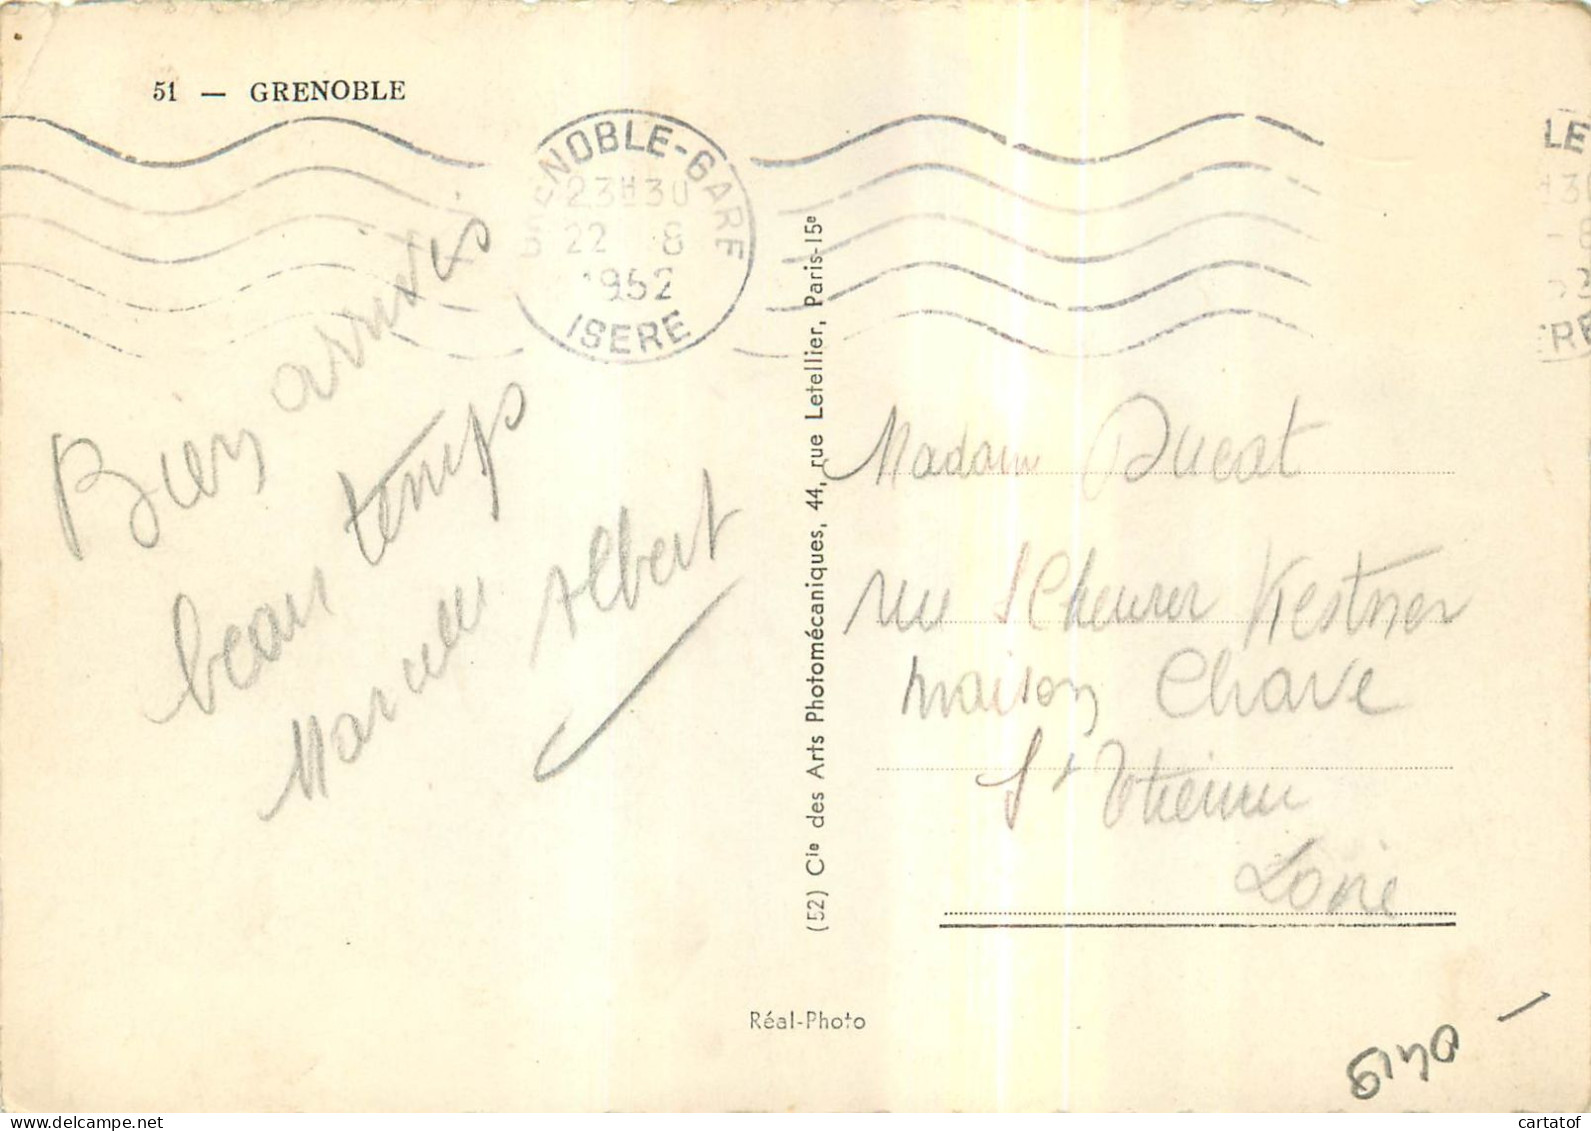 51 — GRENOBLE
GRENOBLE-GARE
23H30
22 8
1952
ISERE
Bien arrivés
beau temps
Marcelle Albert
(52) Cie des Arts Photomécaniques, 44, rue Letellier, Paris-15e
Madame Ducat
rue Scheurer Kestner
maison Chave
St Etienne
Loire
Réal-Photo
cartatof